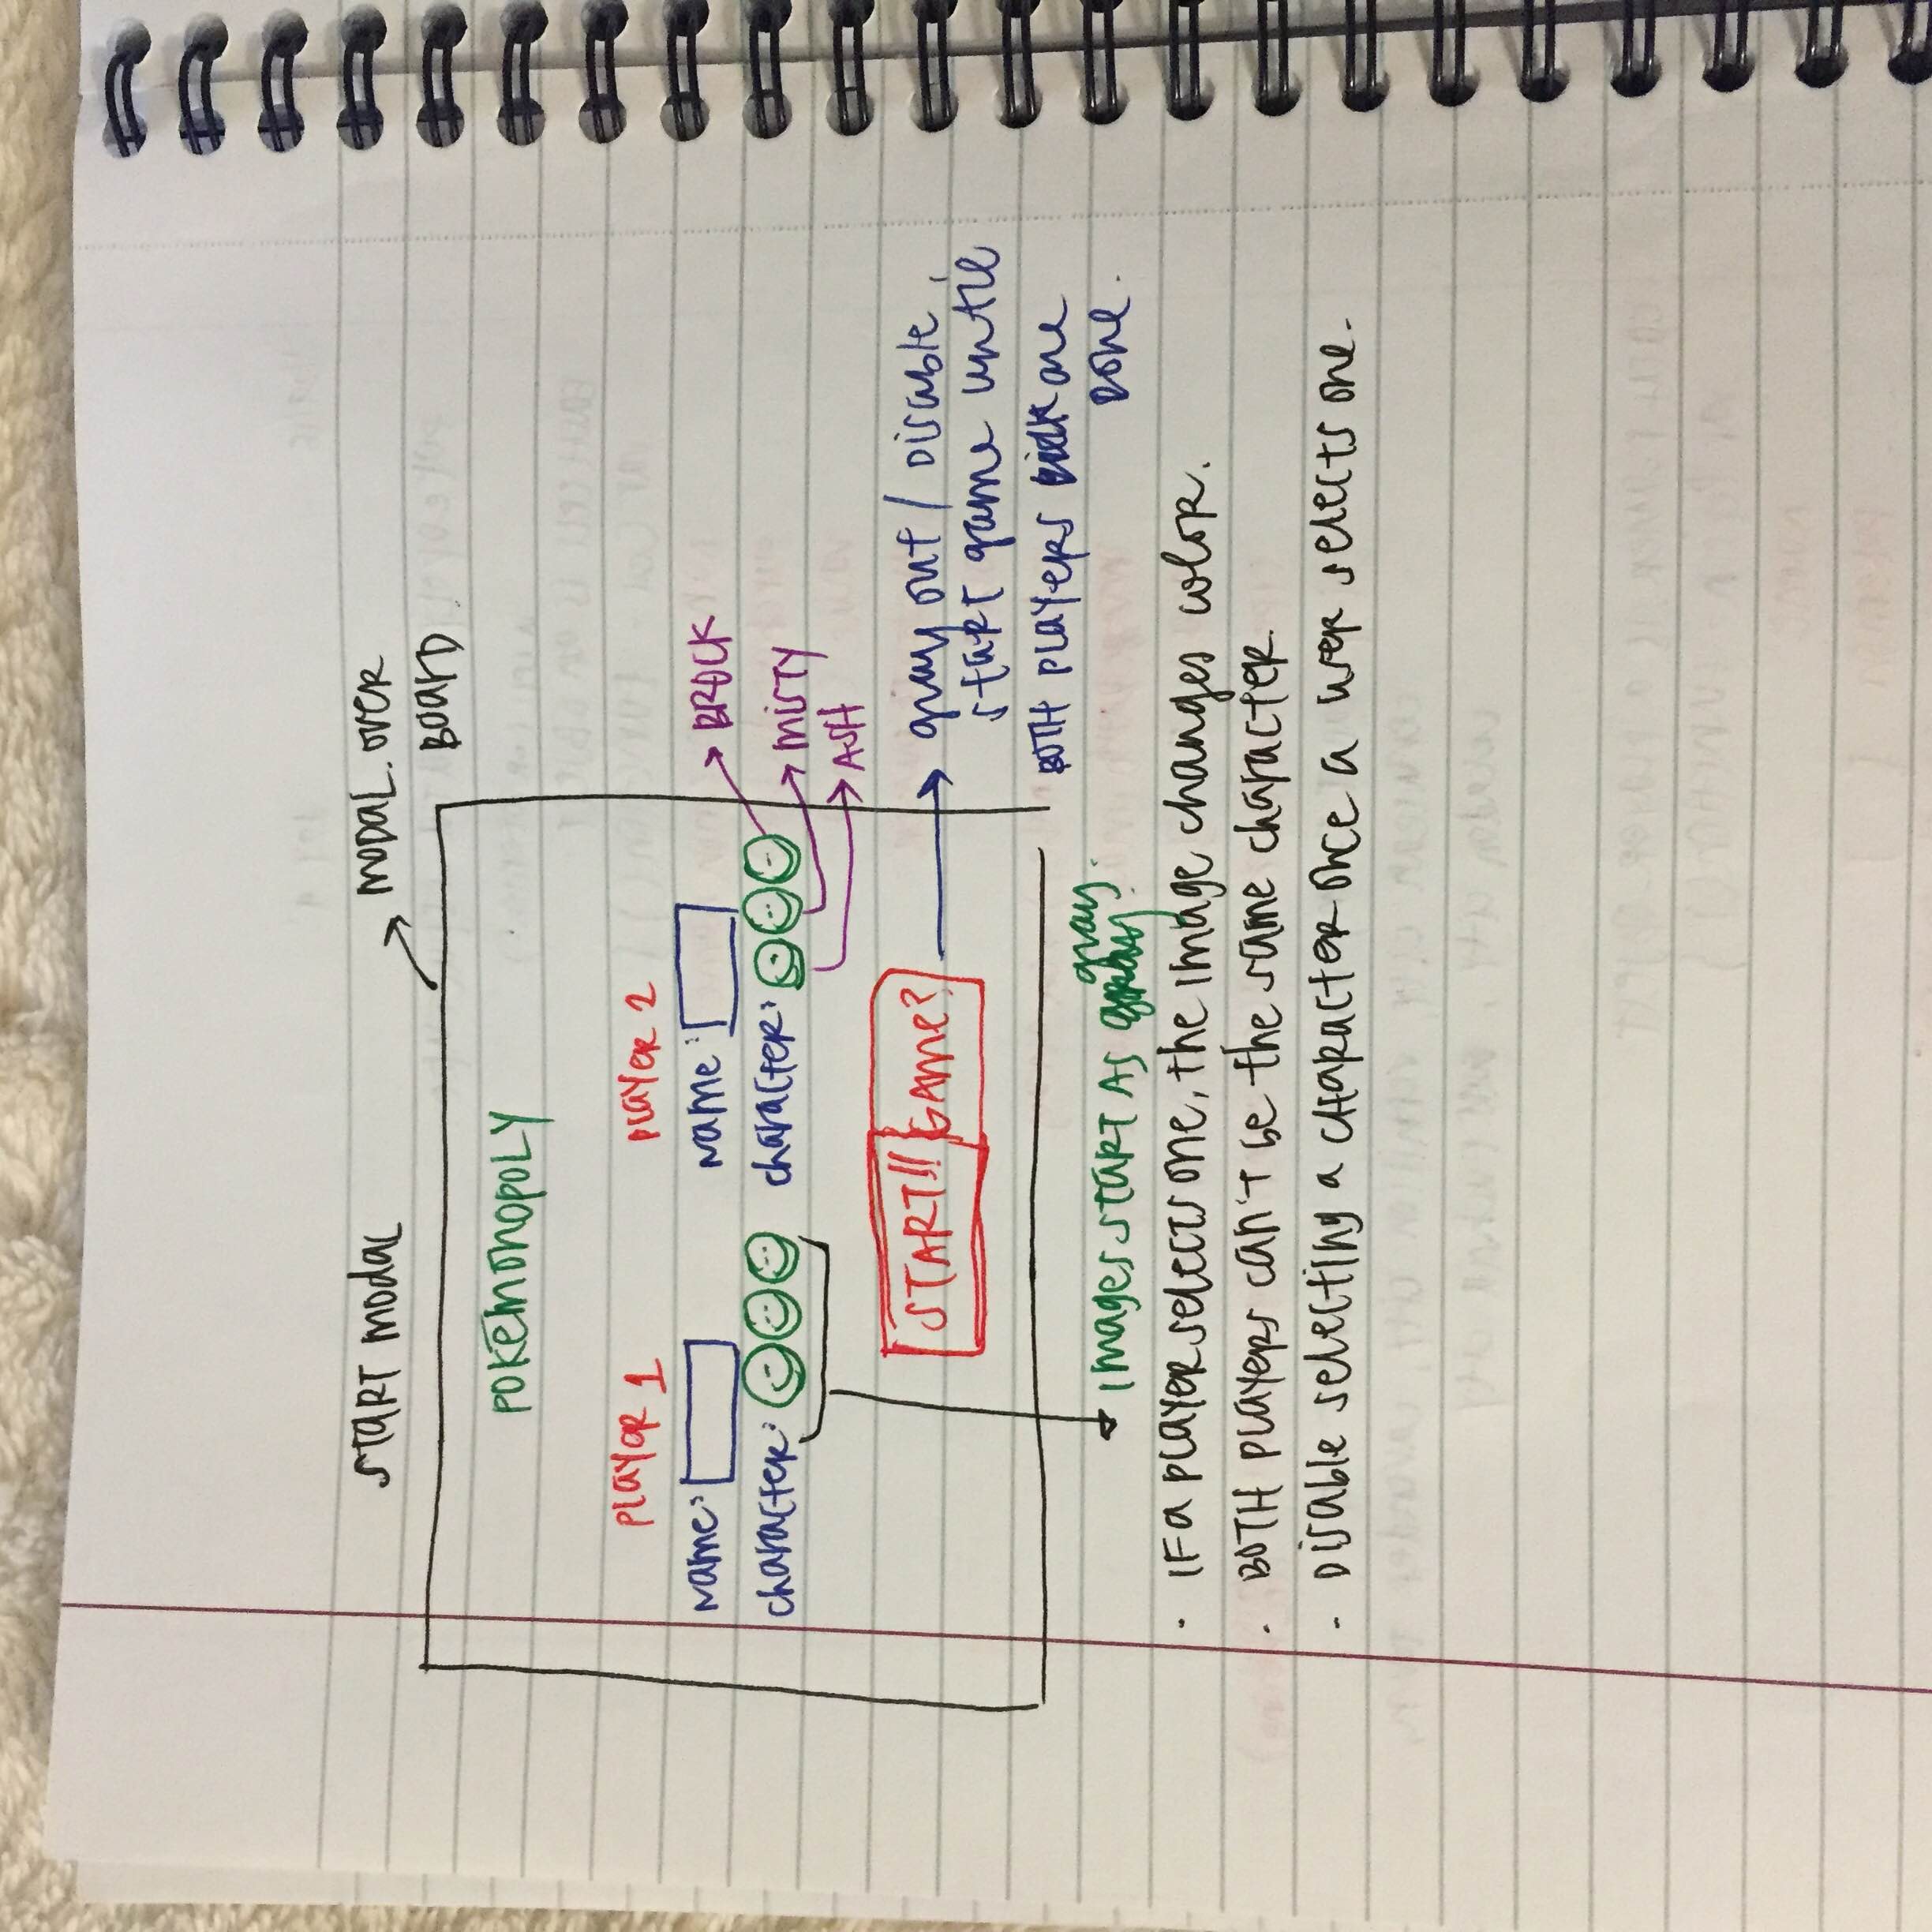 START MODAL
MODAL OVER
BOARD
POKEMONOPOLY
PLAYER 1
PLAYER 2
Name:
Name:
BROCK
character:
character:
MISTY
ASH
START!! GAME?
gray out / DISABLE
START game until
BOTH PLAYERS are
DONE.
gray.
Images START AS gray
· IF a PLAYER selects one, the image changes color.
· BOTH players can't be the same character.
- Disable selecting a character once a user selects one.